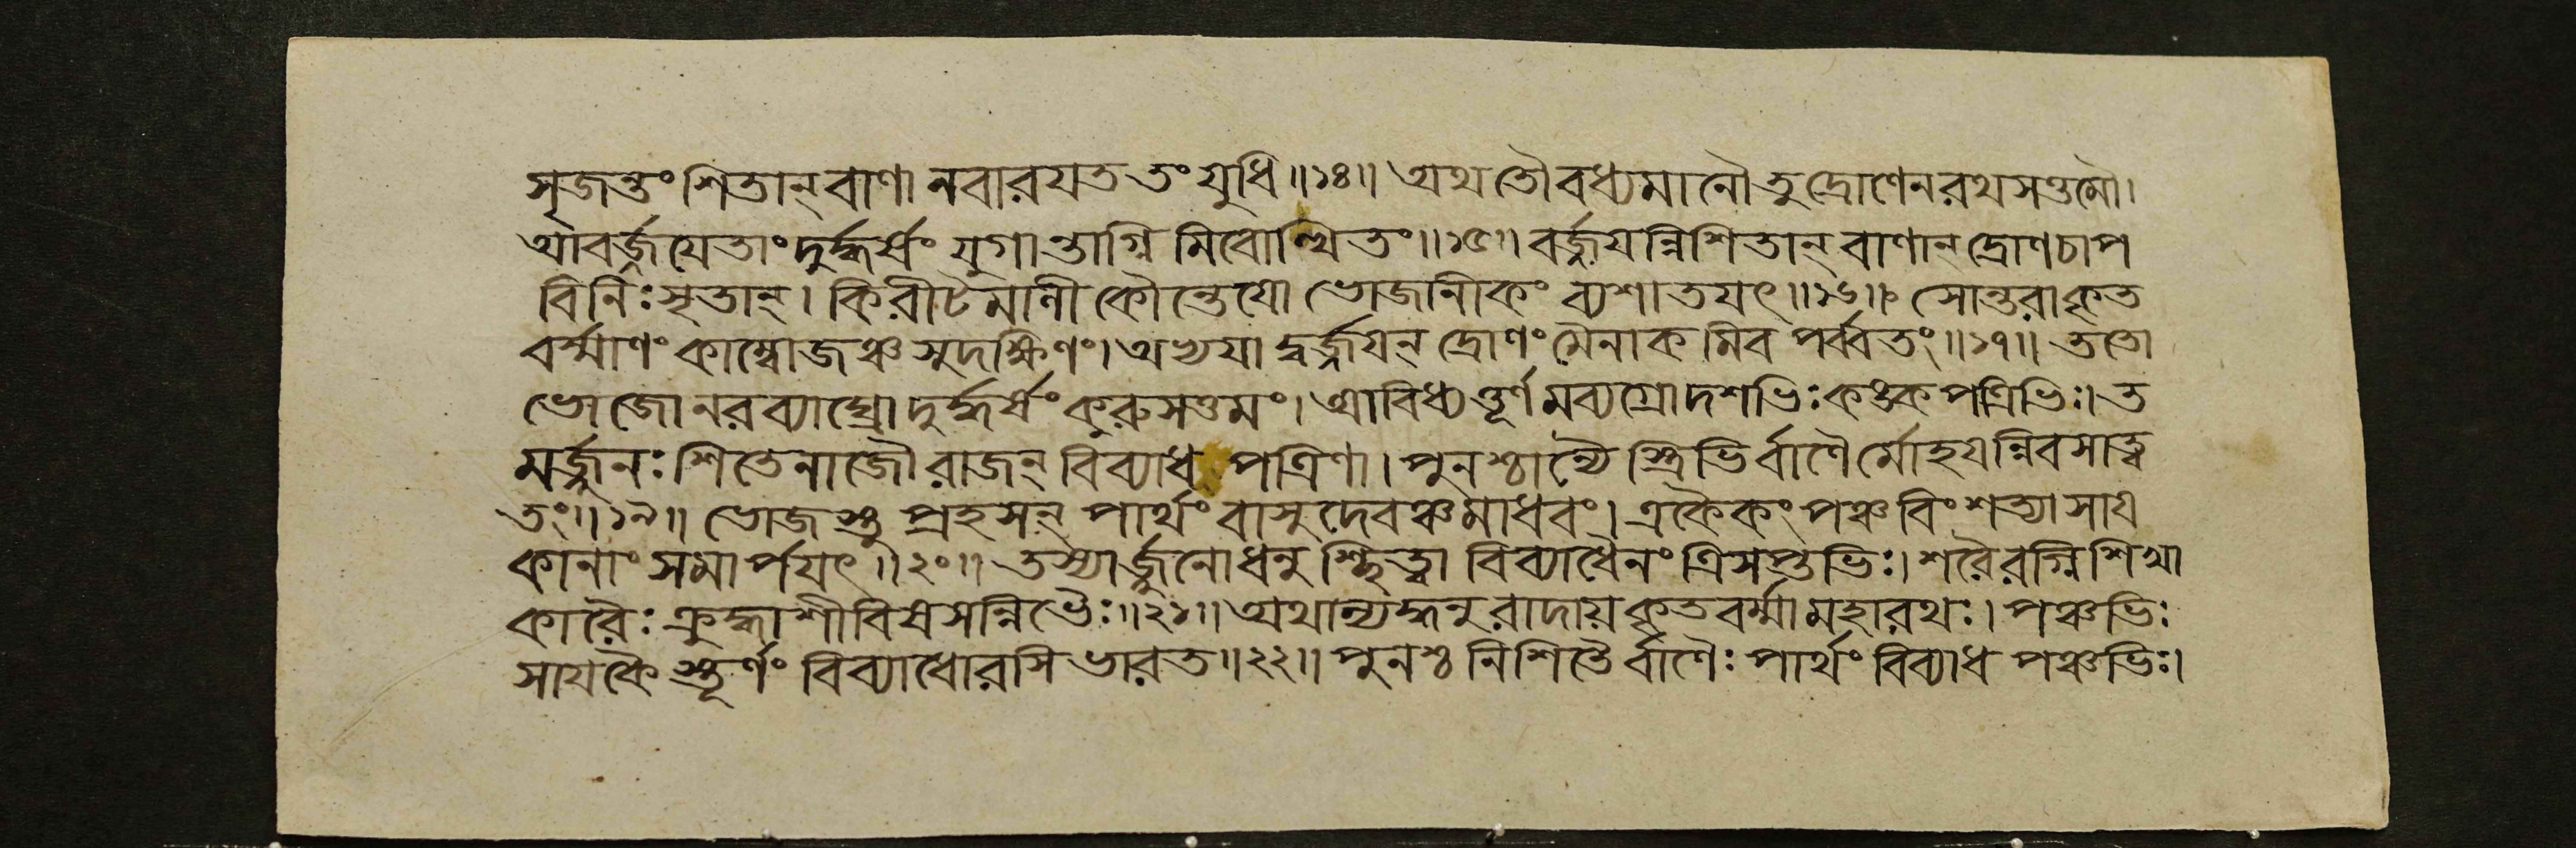 সৃজন্তং শিতান্ বাণা নবারযত তং যুধি॥১৪॥ অথ তৌ বধ্যমানৌ তু দ্রোণেন রথ সত্তমৌ।
আবর্জ্জযেতাং দুর্দ্ধর্ষং যুগান্তাগ্নি মিবোত্থিতং॥১৫॥ বর্জ্জযন্নিশিতান্ বাণান্ দ্রোণচাপ
বিনিঃসৃতান্। কিরীটমালী কৌন্তেযো ভোজানীকং ব্যশাতযৎ॥১৬॥ সোন্তরাকৃত
বর্ম্মাণং কাম্বোজঞ্চ সুদক্ষিণং। অভ্যযাদ্বর্জ্জযন্ দ্রোণং মৈনাক মিব পর্ব্বতং॥১৭॥ ততো
ভোজো নরব্যাঘ্রো দুর্দ্ধর্ষং কুরুসত্তমং। আবিধ্যত্তূর্ণমব্যগ্রো দশভিঃ কঙ্কপত্রিভিঃ। ত
মর্জ্জুনঃ শিতেনাজৌ রাজন্ বিব্যাধ পত্রিণা। পুনশ্চান্যৈ স্ত্রিভির্বাণৈর্মোহযন্নিব সাত্ব
তং॥১৯॥ ভোজস্তু প্রহসন্ পার্থং বাসুদেবঞ্চ মাধবং। একৈকং পঞ্চবিংশত্যা সায
কানাং সমার্পযৎ॥২০॥ তস্যার্জ্জুনো ধনু শ্ছিত্ত্বা বিব্যাধৈনং ত্রিসপ্তভিঃ। শরৈরগ্নিশিখা
কারৈঃ ক্রুদ্ধাশীবিষসন্নিভৈঃ॥২১॥ অথান্যদ্ধনু রাদায় কৃতবর্ম্মা মহারথঃ। পঞ্চভিঃ
সাযকৈ স্তূর্ণং বিব্যাধোরসি ভারত॥২২॥ পুনশ্চ নিশিতৈর্বাণৈঃ পার্থং বিব্যাধ পঞ্চভিঃ।